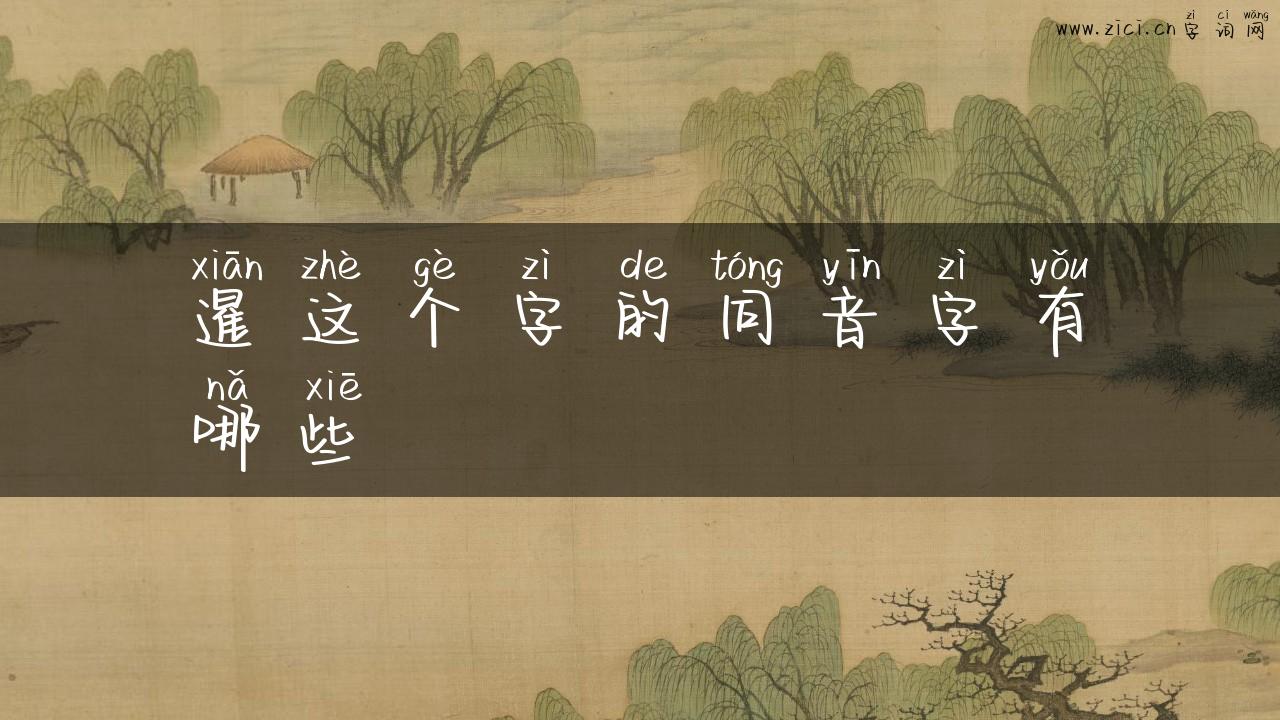 zì cí wǎng
www.zici.cn 字词网
xiān zhè gè zì de tóng yīn zì yǒu
暹这个字的同音字有
nǎ xiē
哪些